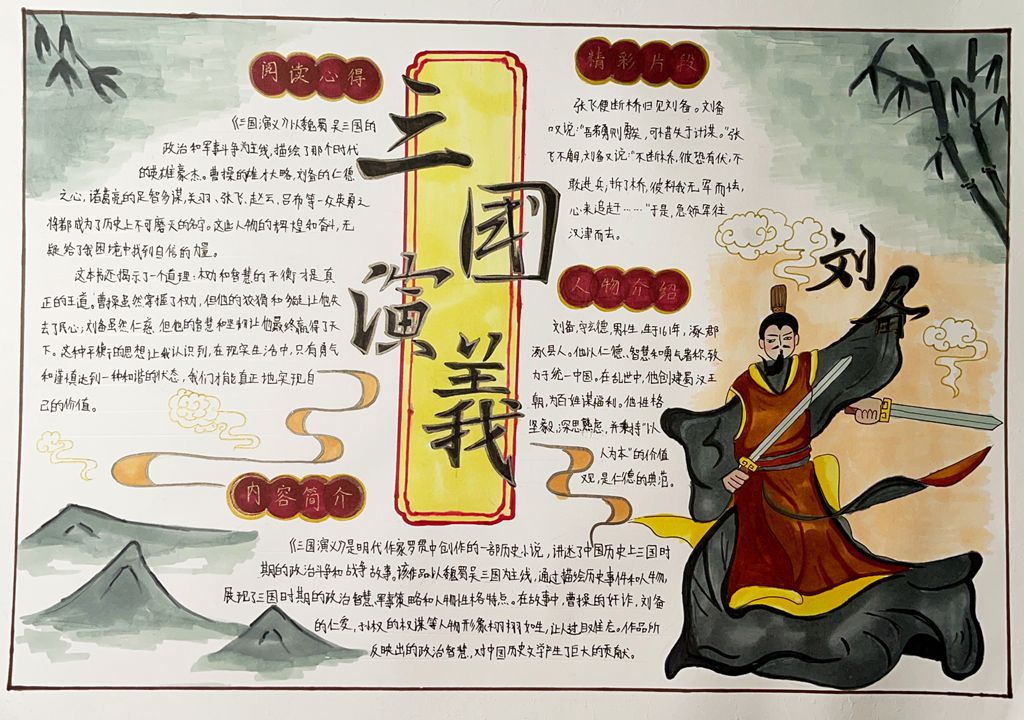 三国演義
阅读心得
《三国演义》以魏蜀吴三国的
政治和军事斗争为主线，描绘了那个时代
的英雄豪杰。曹操的雄才大略，刘备的仁德
之心，诸葛亮的足智多谋，关羽、张飞、赵云、吕布等一众英勇之
将都成为了历史上不可磨灭的名字。这些人物的辉煌和奋斗，无
疑给了我困境中找到自信的力量。
这本书还揭示了一个道理：权力和智慧的平衡才是真
正的王道。曹操虽然掌握了权力，但他的狡猾和多疑让他失
去了民心；刘备虽然仁慈，但他的智慧和坚韧让他最终赢得了天
下。这种平衡的思想让我认识到，在现实生活中，只有勇气
和谨慎达到一种和谐的状态，我们才能真正地实现自
己的价值。
精彩片段
张飞便断桥归见刘备。刘备
叹说："吾弟勇则勇矣，可惜失于计谋。"张
飞不解，刘备又说："不断桥，彼恐有伏，不
敢进兵；拆了桥，彼料我无军而怯，
必来追赶……"于是，急领军往
汉津而去。
人物介绍
刘备，字玄德，男性，生于161年，涿郡
涿县人。他以仁德、智慧和勇气著称，致
力于统一中国。在乱世中，他创建蜀汉王
朝，为百姓谋福利。他性格
坚毅，深思熟虑，并秉持"以
人为本"的价值
观，是仁德的典范。
刘备
内容简介
《三国演义》是明代作家罗贯中创作的一部历史小说，讲述了中国历史上三国时
期的政治斗争和战争故事。该作品以魏蜀吴三国为主线，通过描绘历史事件和人物，
展现了三国时期的政治智慧、军事策略和人物性格特点。在故事中，曹操的奸诈，刘备
的仁爱，孙权的权谋等人物形象栩栩如生，让人过目难忘。作品所
反映出的政治智慧，对中国历史文学产生了巨大的贡献。